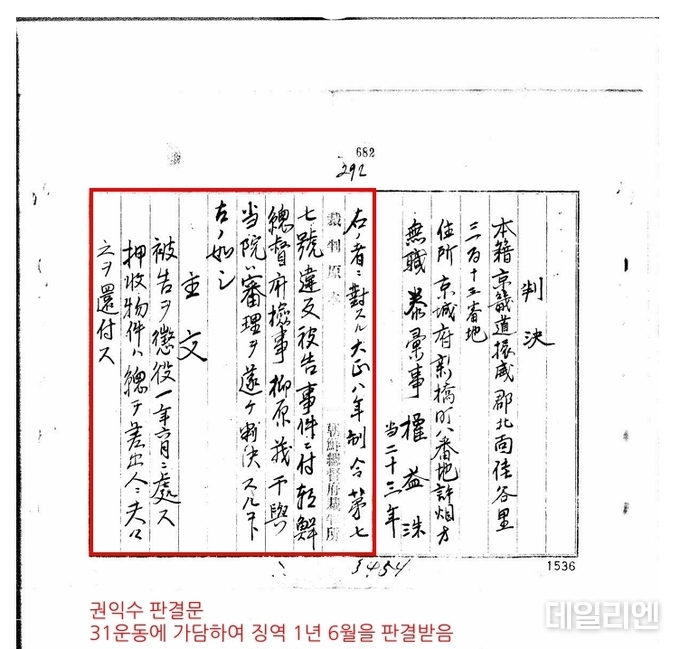 682
292
判決
本籍 京畿道振威郡北面佳谷里
三百十三番地
住所 京城府新橋町八番地許烟方
無職 泰彙事 權益洙
当二十三年
右ノ者ニ對スル大正八年制令第七
裁判原本
朝鮮總督府裁判所
七號違反被告事件ニ付朝鮮
總督府檢事柳原茂干與
当院ハ審理ヲ遂ケ判決スルコト
左ノ如シ
主文
被告ヲ懲役一年六月ニ處ス
押收物件ハ總テ差出人ニ夫々
之ヲ還付ス
1536
권익수 판결문
31운동에 가담하여 징역 1년 6월을 판결받음
데일리엔